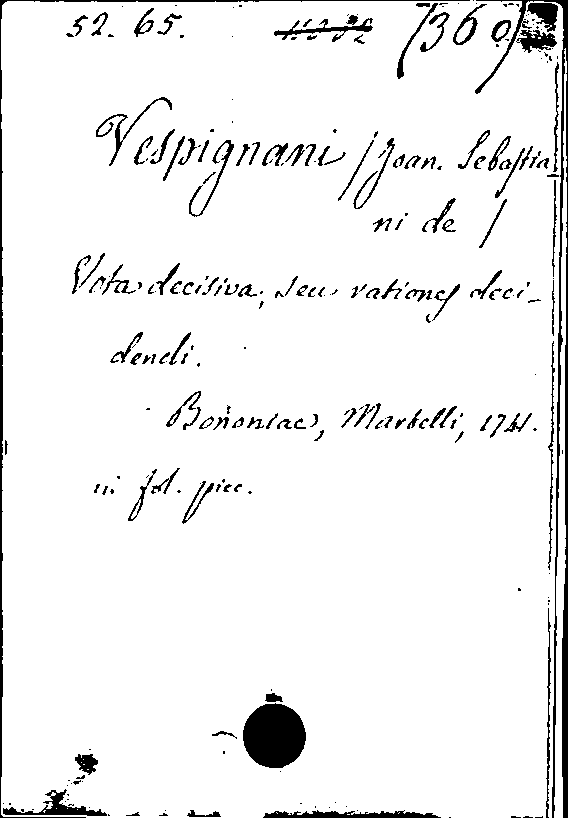 52. 65. (360)
Vespignani /Joan. Sebastia
ni de /
Vota decisiva, seu rationes deci-
dendi.
Bononiae, Martelli, 1741.
in fol. picc.